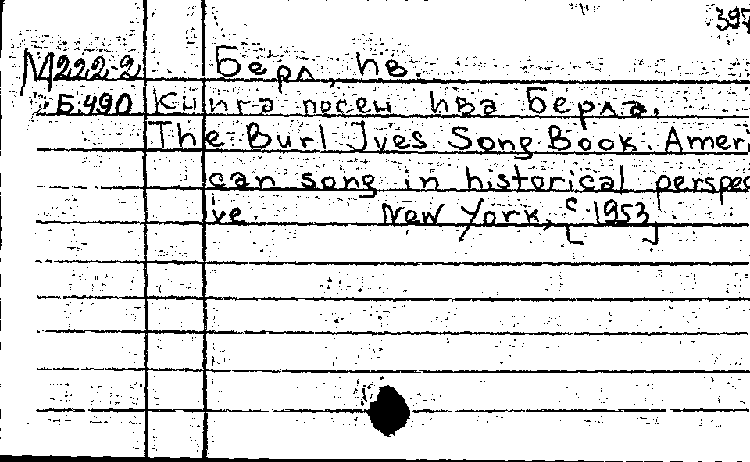 397
М222-2 Берл, Ив.
Б.490 Книга песен Ива Берла.
The Burl Ives Song Book. Ameri
can song in historical perspec
ive. New York, [c.1953]